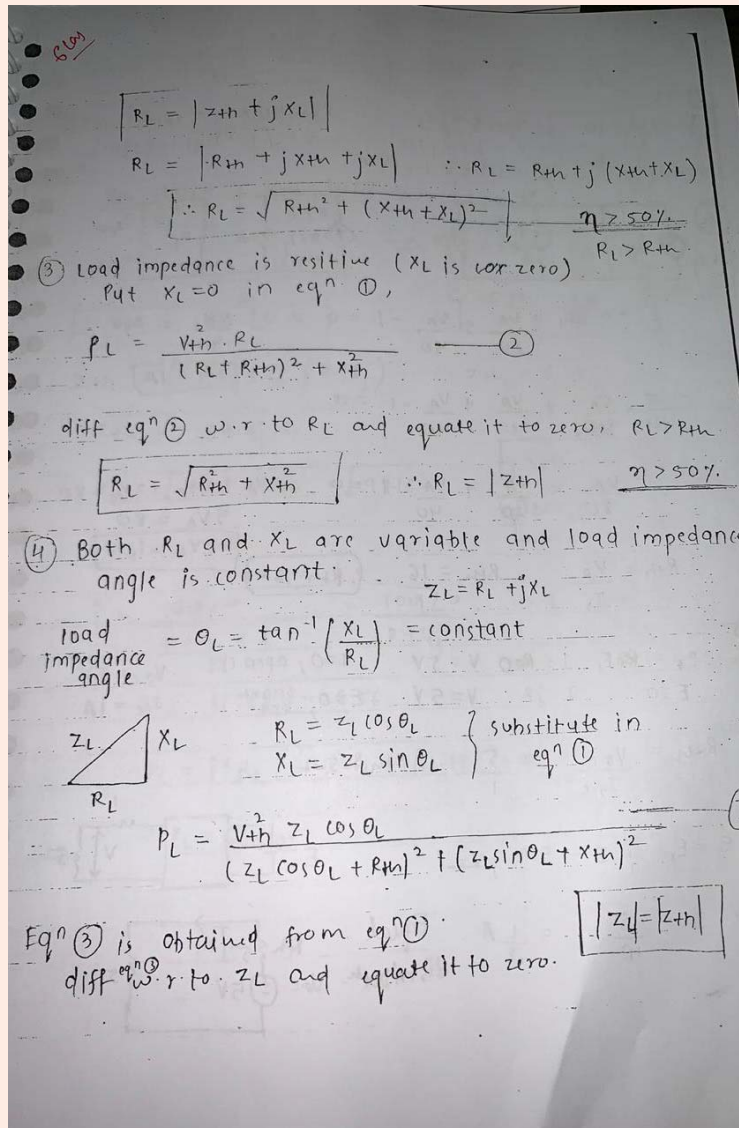 R_L = |Z_th + jX_L|
R_L = |R_th + jX_th + jX_L| ∴ R_L = R_th + j(X_th + X_L)
∴ R_L = √(R_th² + (X_th + X_L)²) η > 50%.
R_L > R_th
③ Load impedance is resitive (X_L is zero)
Put X_L = 0 in eqn ①,
P_L = V_th² · R_L / ((R_L + R_th)² + X_th²) — ②
diff eqn ② w.r.to R_L and equate it to zero, R_L > R_th
R_L = √(R_th² + X_th²) ∴ R_L = |Z_th| η > 50%.
④ Both R_L and X_L are variable and load impedance
angle is constant. Z_L = R_L + jX_L
load impedance angle = θ_L = tan⁻¹(X_L / R_L) = constant
Z_L X_L R_L = Z_L cos θ_L } substitute in
X_L = Z_L sin θ_L eqn ①
R_L
P_L = V_th² Z_L cos θ_L / ((Z_L cos θ_L + R_th)² + (Z_L sin θ_L + X_th)²)
Eqn ③ is obtained from eqn ① |Z_L| = |Z_th|
diff eqn ③ w.r.to. Z_L and equate it to zero.